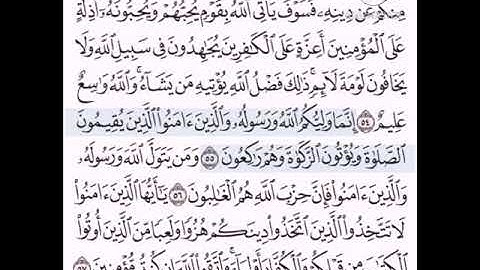 مِنكُمْ عَن دِينِهِۦ فَسَوْفَ يَأْتِى ٱللَّهُ بِقَوْمٍ يُحِبُّهُمْ وَيُحِبُّونَهُۥٓ أَذِلَّةٍ
عَلَى ٱلْمُؤْمِنِينَ أَعِزَّةٍ عَلَى ٱلْكَٰفِرِينَ يُجَٰهِدُونَ فِى سَبِيلِ ٱللَّهِ وَلَا
يَخَافُونَ لَوْمَةَ لَآئِمٍ ۚ ذَٰلِكَ فَضْلُ ٱللَّهِ يُؤْتِيهِ مَن يَشَآءُ ۚ وَٱللَّهُ وَٰسِعٌ
عَلِيمٌ ٥٤ إِنَّمَا وَلِيُّكُمُ ٱللَّهُ وَرَسُولُهُۥ وَٱلَّذِينَ ءَامَنُوا۟ ٱلَّذِينَ يُقِيمُونَ
ٱلصَّلَوٰةَ وَيُؤْتُونَ ٱلزَّكَوٰةَ وَهُمْ رَٰكِعُونَ ٥٥ وَمَن يَتَوَلَّ ٱللَّهَ وَرَسُولَهُۥ
وَٱلَّذِينَ ءَامَنُوا۟ فَإِنَّ حِزْبَ ٱللَّهِ هُمُ ٱلْغَٰلِبُونَ ٥٦ يَٰٓأَيُّهَا ٱلَّذِينَ ءَامَنُوا۟
لَا تَتَّخِذُوا۟ ٱلَّذِينَ ٱتَّخَذُوا۟ دِينَكُمْ هُزُوًا وَلَعِبًا مِّنَ ٱلَّذِينَ أُوتُوا۟
ٱلْكِتَٰبَ مِن قَبْلِكُمْ وَٱلْكُفَّارَ أَوْلِيَآءَ ۚ وَٱتَّقُوا۟ ٱللَّهَ إِن كُنتُم مُّؤْمِنِينَ ٥٧